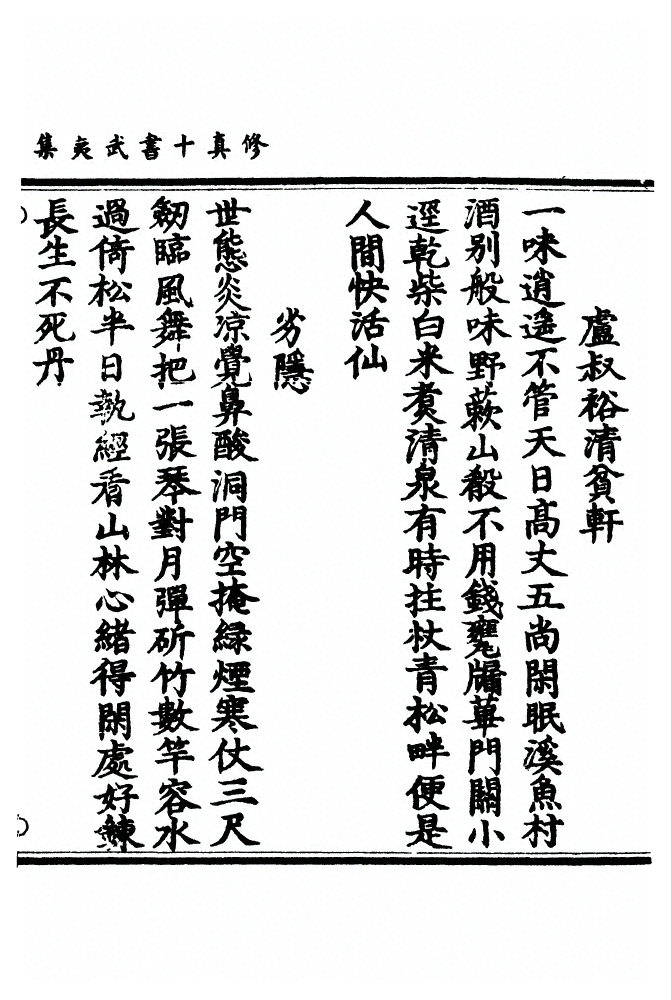 修真十書武夷集
盧叔裕清貧軒
一味逍遙不管天日高丈五尚閑眠溪魚村
酒别般味野蔌山殽不用錢甕牖蓽門關小
逕乾柴白米煮清泉有時拄杖青松畔便是
人間快活仙
岁隱
世態炎凉覺鼻酸洞門空掩綠煙寒仗三尺
劒臨風舞把一張琴對月彈斫竹數竿容水
過倚松半日執經看山林心緒得閑處好鍊
長生不死丹